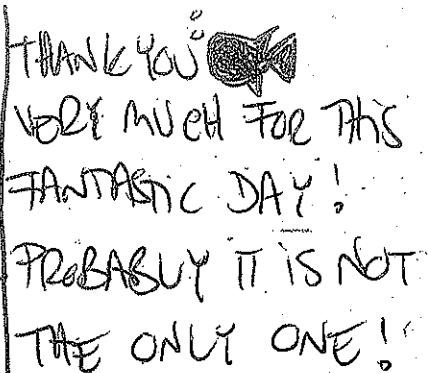 THANK YOU
VERY MUCH FOR THiS
FANTASTiC DAY!
PROBABLY IT iS NOT
THE ONLY ONE!